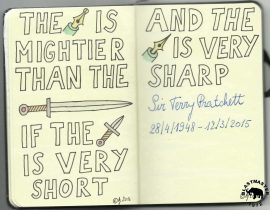 THE IS
MIGHTIER
THAN THE
IF THE
IS VERY
SHORT
AND THE
IS VERY
SHARP
Sir Terry Pratchett
28/4/1948 - 12/3/2015